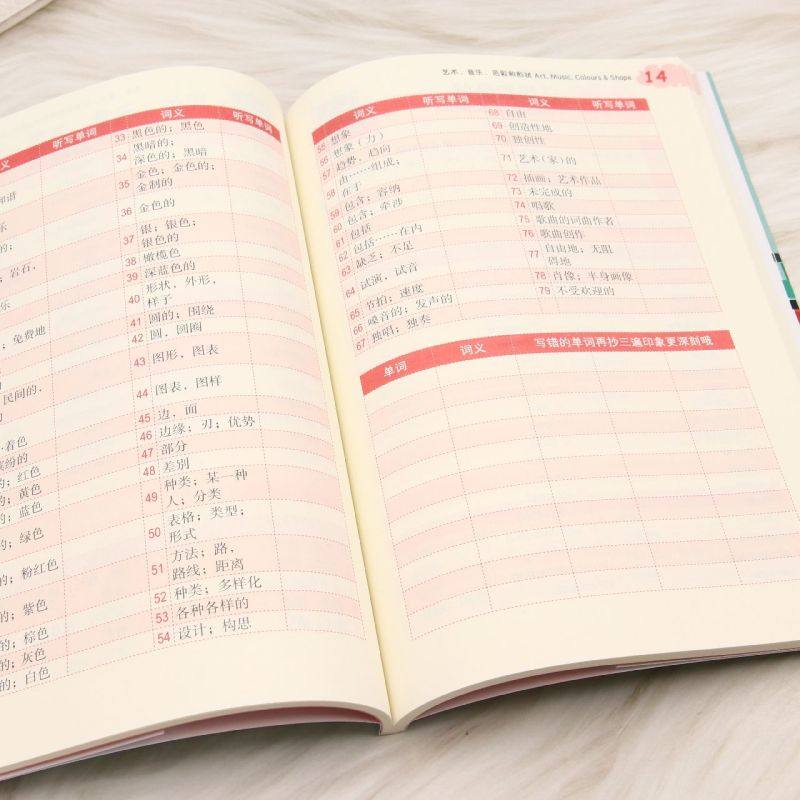 词义 听写单词 词义 听写单词
和谐
乐
的；
；岩石，
乐
；免费地
民间的，
的
着色
缤纷的
的；红色
的；黄色
的；蓝色
的；绿色
的；粉红色
的；紫色
的；棕色
的；灰色
的；白色
33 黑色的；黑色
34 黑暗的；
深色的；黑暗
35 金色；金色的；
金制的
36 金色的
37 银；银色；
银色的
38 橄榄色
39 深蓝色的
40 形状，外形，
样子
41 圆的；围绕
42 圆，圆圈
43 图形，图表
44 图表，图样
45 边，面
46 边缘；刃；优势
47 部分
48 差别
49 种类；某一种
人；分类
50 表格；类型；
形式
51 方法；路，
路线；距离
52 种类；多样化
53 各种各样的
54 设计；构思
艺术、音乐、色彩和形状 Art, Music, Colours & Shape 14
词义 听写单词 词义 听写单词
55 想象
56 想象（力）
57 趋势，趋向
58 由……组成；
在于
59 包含；容纳
60 包含；牵涉
61 包括
62 包括……在内
63 缺乏；不足
64 试演，试音
65 节拍；速度
66 嗓音的；发声的
67 独唱；独奏
68 自由
69 创造性地
70 独创性
71 艺术（家）的
72 描画；艺术作品
73 未完成的
74 唱歌
75 歌曲的词曲作者
76 歌曲创作
77 自由地；无阻
碍地
78 肖像；半身画像
79 不受欢迎的
单词 词义 写错的单词再抄三遍印象更深刻哦